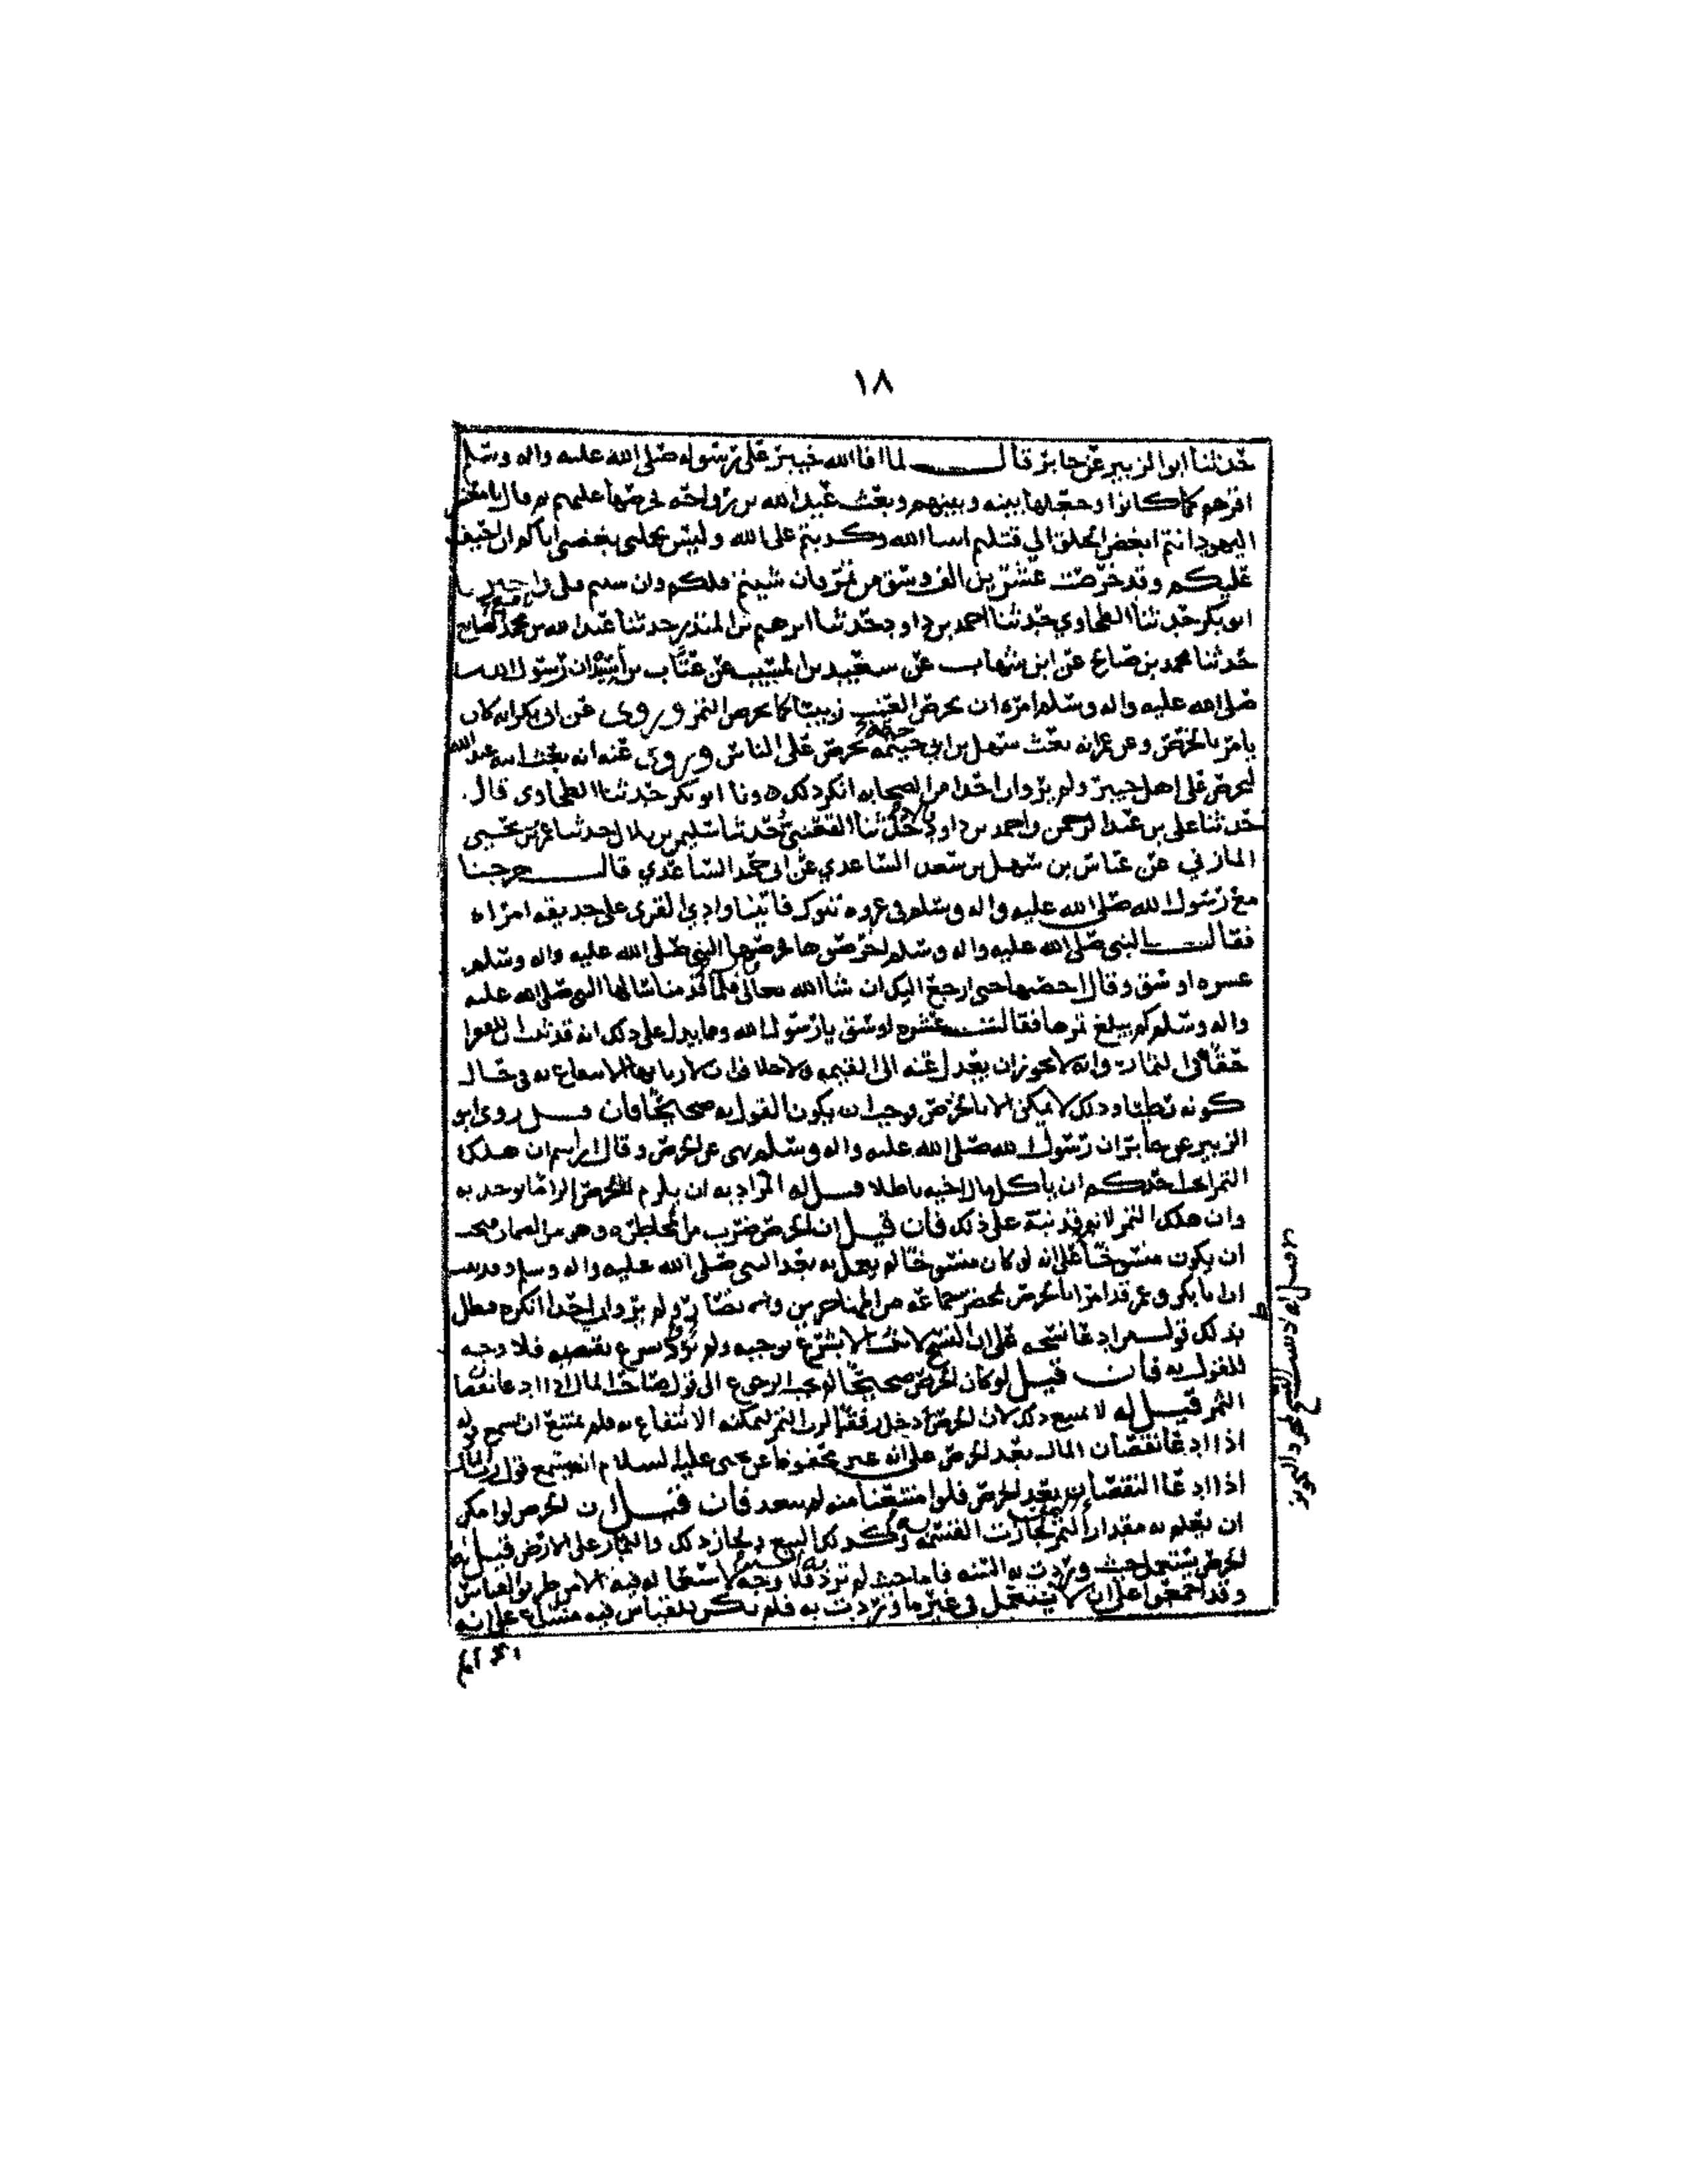 ١٨
حدثنا ابوا الزبير عن جابر قال لما افا الله خيبر على رسوله صلى الله عليه واله وسلم
اقرهم كما كانوا وجعلها بينه وبينهم وبعث عبد الله بن رواحه فخرصها عليهم ثم قال يا معشر
اليهود انتم ابغض الخلق الي قتلتم انبيا الله وكذبتم على الله وليس يحملني بغضي اياكم ان احيف
عليكم وقد خرصت عشرين الف وسق من تمر فان شيتم فلكم وان شيتم فلي
ابو بكر حدثنا الطحاوي حدثنا احمد بن داود حدثنا ابرهيم بن المنذر حدثنا عبد الله بن نافع الصايغ
حدثنا محمد بن صالح عن ابن شهاب عن سعيد بن المسيب عن عتاب بن أسيد ان رسول الله
صلى الله عليه واله وسلم امره ان يخرص العنب زبيبا كما يخرص التمر وروى عن ابى بكر انه كان
يامر بالخرص وعن عمر انه بعث سهل بن ابي حثمه يخرص على الناس وروى عنه انه بعث ابنه عبد الله
ليخرص على اهل خيبر ولم يرو ان احدا من الصحابه انكر ذلك ونا ابو بكر حدثنا الطحاوى قال
حدثنا على بن عبد الرحمن واحمد بن داود قالا حدثنا القعنبي حدثنا سليمن بن بلال حدثنا عمرو بن يحيى
المازني عن عباس بن سهل بن سعد الساعدي عن ابى حميد الساعدي قال خرجنا
مع رسول الله صلى الله عليه واله وسلم في غزوه تبوك فاتينا وادي القرى على حديقه امراه
فقال النبى صلى الله عليه واله وسلم اخرصوها فخرصها النبى صلى الله عليه واله وسلم
عشره اوسق وقال احصيها حتى ارجع اليك ان شا الله تعالى فلما قدمنا سالها النبى صلى الله عليه
واله وسلم كم يبلغ ثمرها فقالت عشره اوسق يا رسول الله ومما يدل على ذلك انه قد ثبت ان للفقرا
حقا في الثمار وانه لا يجوز ان يعدل عنه الى القيمه ولا خلاف ان لاربابها الانتفاع به في حال
كونه رطبا وذلك لا يمكن الا بالخرص فوجب ان يكون القول به صحيحا فان قيل روى ابو
الزبير عن جابر ان رسول الله صلى الله عليه واله وسلم نهى عن الخرص وقال ارايتم ان هلك
التمر ايحب احدكم ان ياكل مال اخيه باطلا قيل له المراد به ان يلزم الخرص الزاما يوخذ به
وان هلك التمر لانه قد نبه على ذلك فان قيل ان الخرص ضرب من المخاطره وهو من القمار فيجب
ان يكون منسوخا على انه لو كان منسوخا لم يعمل به بعد النبى صلى الله عليه واله وسلم وقد بينا
ان ابا بكر وعمر قد امرا بالخرص بمحضر جماعه من المهاجرين والانصار ولم يرو ان احدا انكره فبطل
بذلك قول من ادعا نسخه على ان النسخ لا يثبت الا بشرع يوجبه ولم يرد شرع يقتضيه فلا وجه
للقول به فان قيل لو كان الخرص صحيحا لم يجب الرجوع الى قول صاحب المال اذا ادعا نقصان
الثمر قيل له لا يمنع ذلك لان الخرص أدخل رفقا لرب التمر ليمكنه الانتفاع به فلم يمتنع ان يسمع قوله
اذا ادعا نقصان المال بعد الخرص على انه غير محفوظ عن يحيى عليه السلام انه يسمع قول رب المال
اذا ادعا النقصان بعد الخرص فلو امتنعنا منه لم يبعد فان قيل ان الخرص لو امكن
ان يعلم به مقدار التمر لجازت القسمه به وكذلك البيع ولجاز ذلك والثمار على الارض قيل له
الخرص يستعمل حيث وردت به السنه فاما حيث لم ترد به السنه فلا وجه لاستعماله فيه الا من طريق القياس
وقد اجمعوا على ان لا يستعمل في غير ما وردت به فلم يكن للقياس فيه مساغ على انه